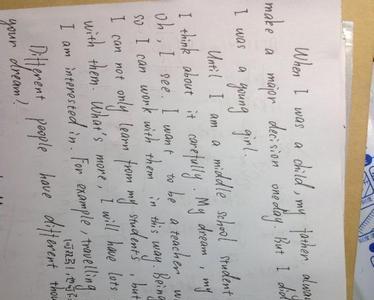 When I was a child, my father alwa
make a major decision oneday. But I did
I was a young girl.
Until I am a middle school student
I think about it carefully. My dream, my
Oh, I see. I want to be a teacher w
so I can work with them in this way. Being
I can not only learn from my students, but
with them. What's more, I will have lots
I am interested in. For example, travelling
Different people have different thou
your dream!